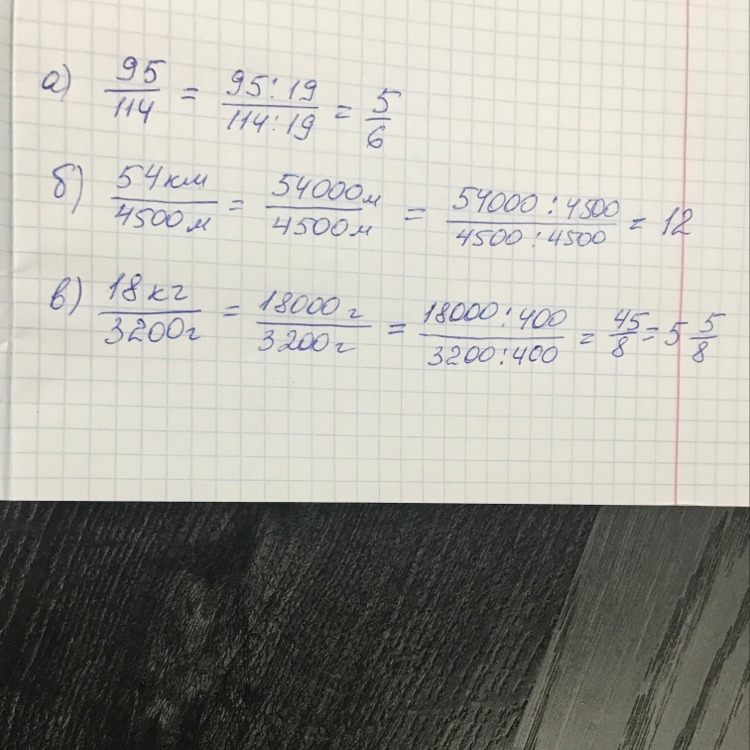 а) 95/114 = 95:19/114:19 = 5/6
б) 54км/4500м = 54000м/4500м = 54000:4500/4500:4500 = 12
в) 18кг/3200г = 18000г/3200г = 18000:400/3200:400 = 45/8 = 5 5/8